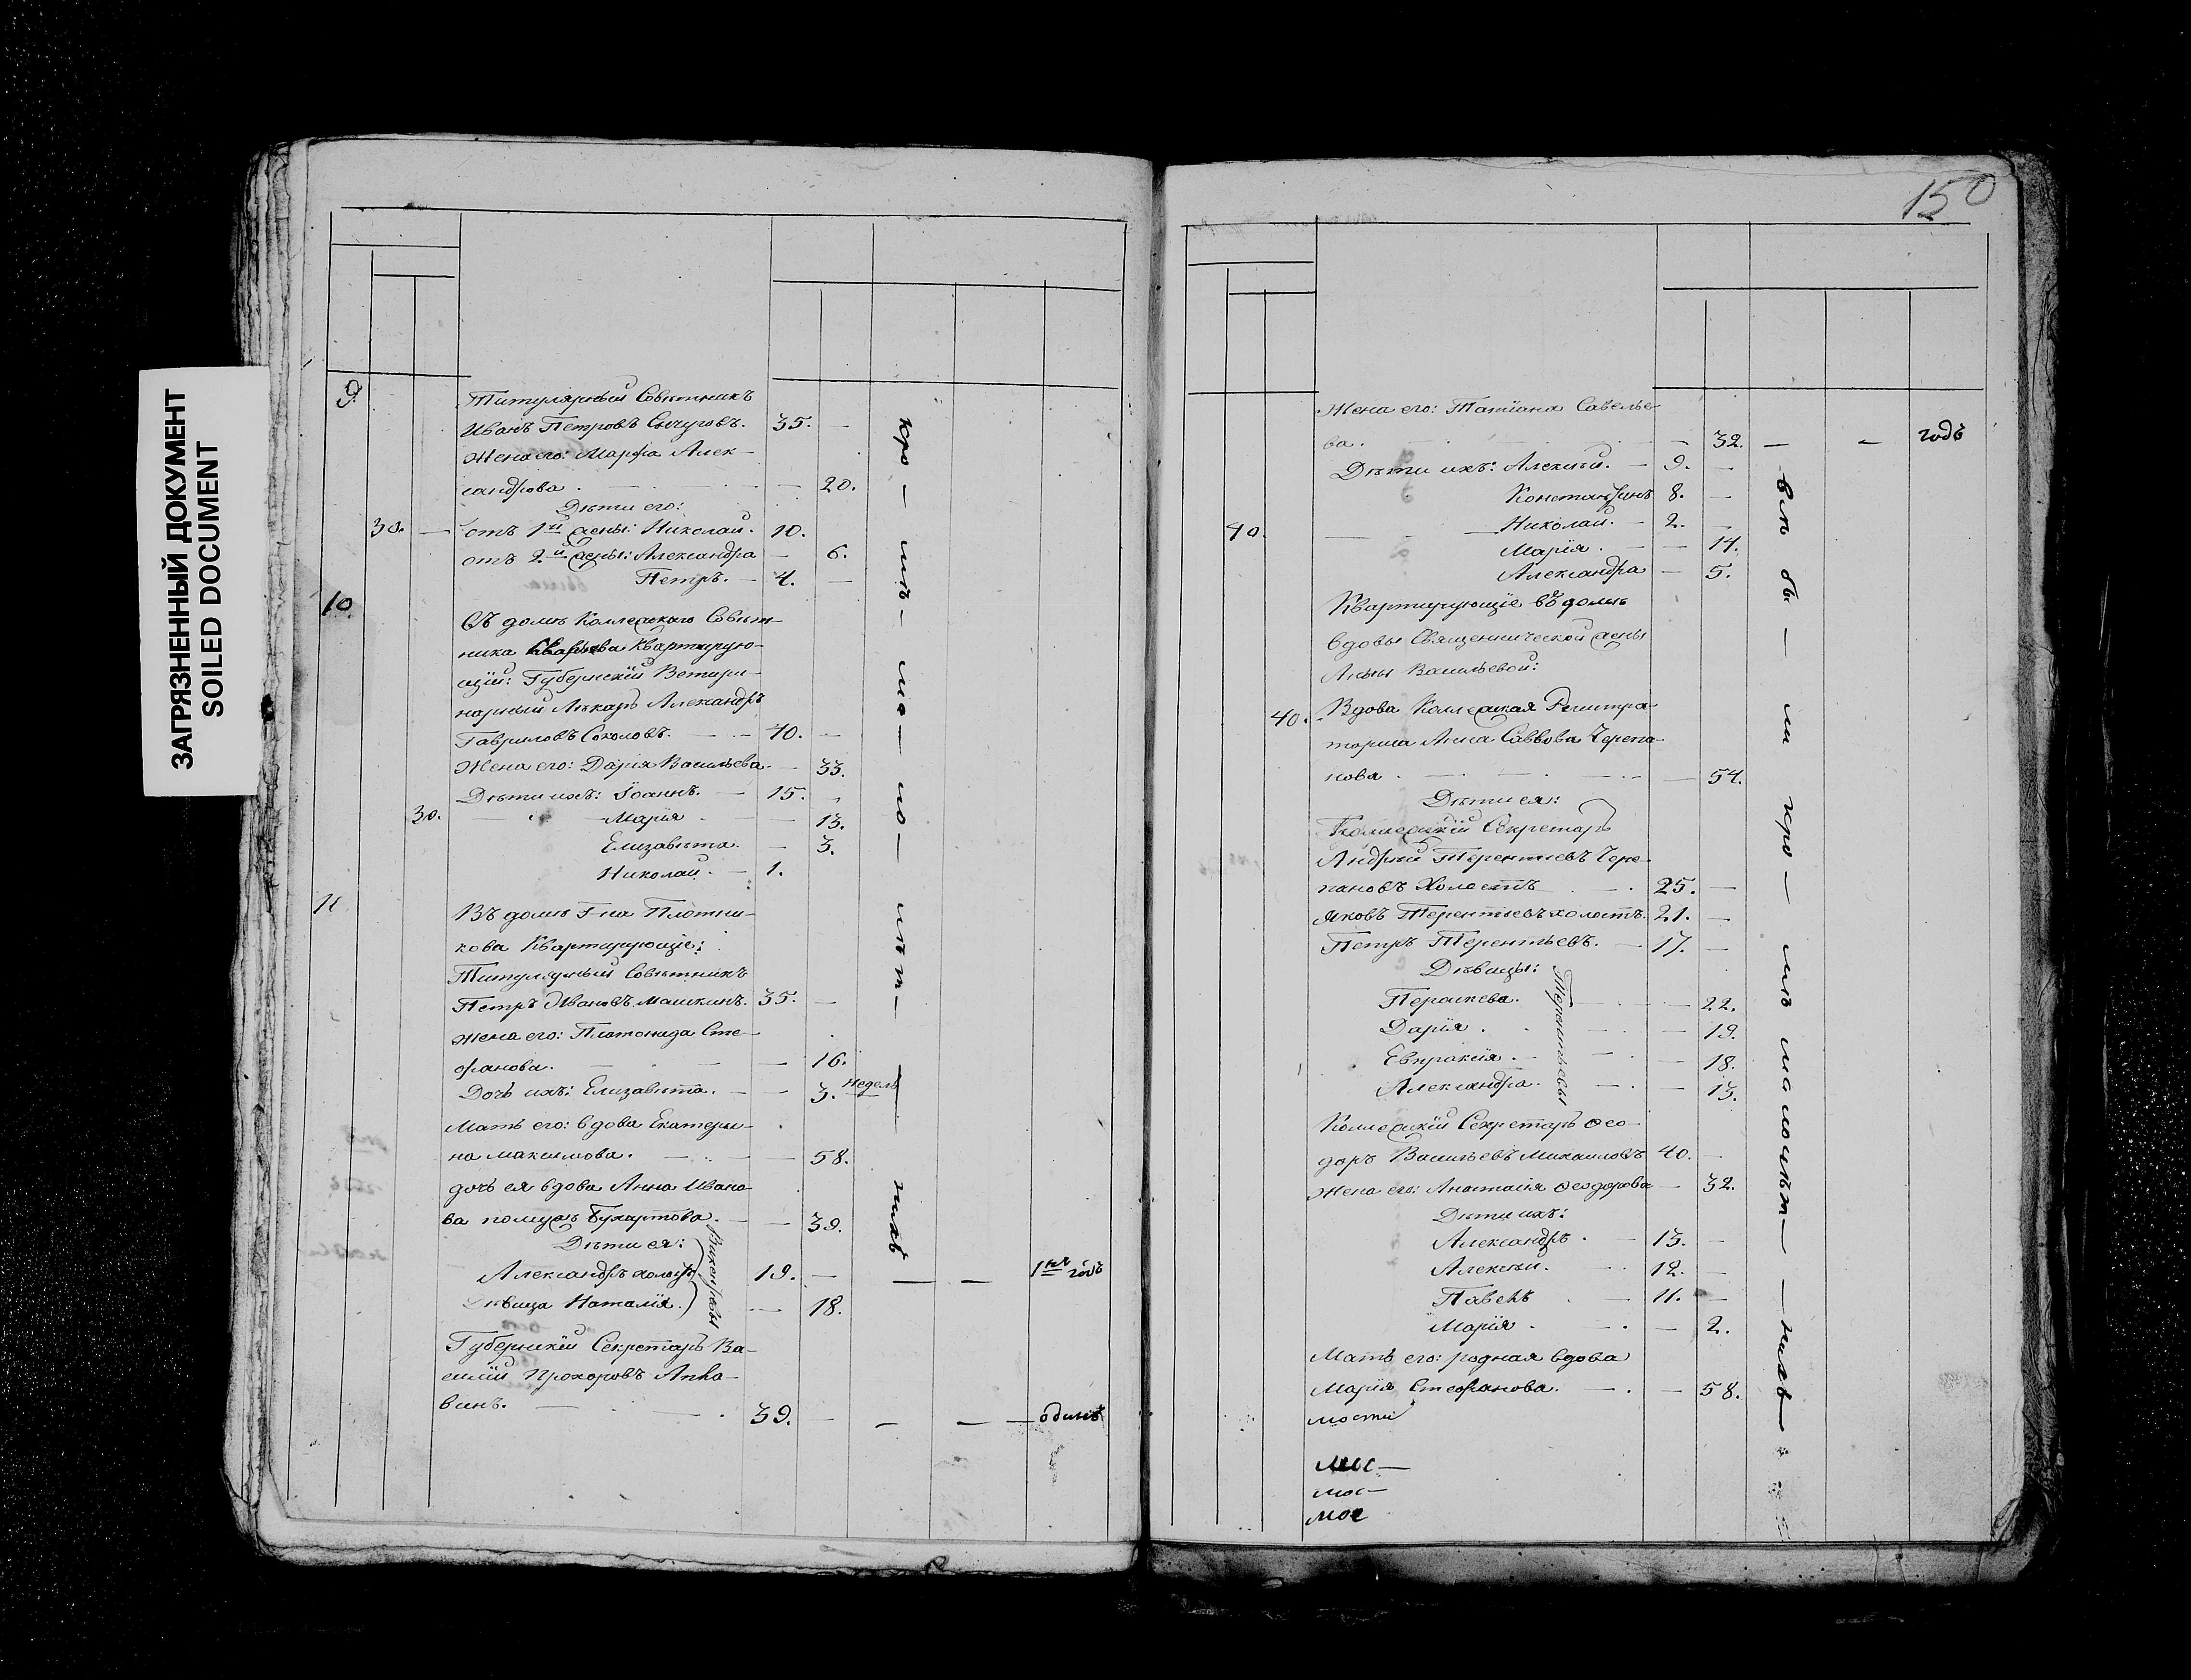 ЗАГРЯЗНЕННЫЙ ДОКУМЕНТ
SOILED DOCUMENT
9.
Титулярный Совѣтникъ
Иванъ Петровъ Сычуговъ. 35. —
Жена его: Марѳа Алек-
сандрова. — 20.
Дѣти его:
30. — отъ 1й жены: Николай. 10.
отъ 2й жены: Александра — 6.
Петръ. — 4. —
10.
Въ домѣ Коллежскаго Совѣт-
ника Квартирую-
щій: Губернскій Ветери-
нарный Лѣкарь Александръ
Гавриловъ Соколовъ. — 40. —
Жена его: Дарія Васильева. — 33.
Дѣти ихъ: Іоаннъ. — 15.
30. — Марія — 13.
Елизавета. — 3.
Николай. — 1.
11
Въ домѣ Г-на Плотни-
кова Квартирующіе:
Титулярный Совѣтникъ
Петръ Ивановъ Машкинъ. 35. —
Жена его: Платонида Сте-
фанова. — 16.
Дочь ихъ: Елизавета. — 3. недель
Мать его: вдова Екатери-
на Максимова. — 58.
дочь ея вдова Анна Ивано-
ва — 39.
Дѣти ея:
Александръ холостъ 19. — — — 1й годъ
Дѣвица Наталія. — 18.
Губернскій Секретарь Ва-
силій Прохоровъ
винъ. — 39. — — — одинъ
150
Жена его: Татіана Савелье-
ва. — 32. — — годъ
Дѣти ихъ: Алексѣй. — 9. —
Константинъ 8. —
40. — Николай. — 2. —
Марія. — 14.
Александра — 5.
Квартирующіе въ домѣ
вдовы Священнической жены
Анны Васильевой:
40. Вдова Коллежская Регистра-
торша Анна Саввова Черепа-
нова. — 54.
Дѣти ея:
Коллежскій Секретарь
Андрей Терентіевъ Чере-
пановъ Холостъ — 25. —
Яковъ Терентьевъ холостъ. 21. —
Петръ Терентьевъ. — 17. —
Дѣвицы:
Терентьевы
Параскева. — 22.
Дарія. — 19.
Евпраксія. — 18.
Александра. — 13.
Коллежскій Секретарь Ѳео-
доръ Васильевъ Михаиловъ 40. —
Жена его: Анастасія Ѳеодорова — 32.
Дѣти ихъ:
Александръ. — 13. —
Алексѣй. — 12. —
Павелъ — 11. —
Марія. — 2.
Мать его: родная вдова
Марія Стефанова. — 58.
мости
мос-
мос-
мос